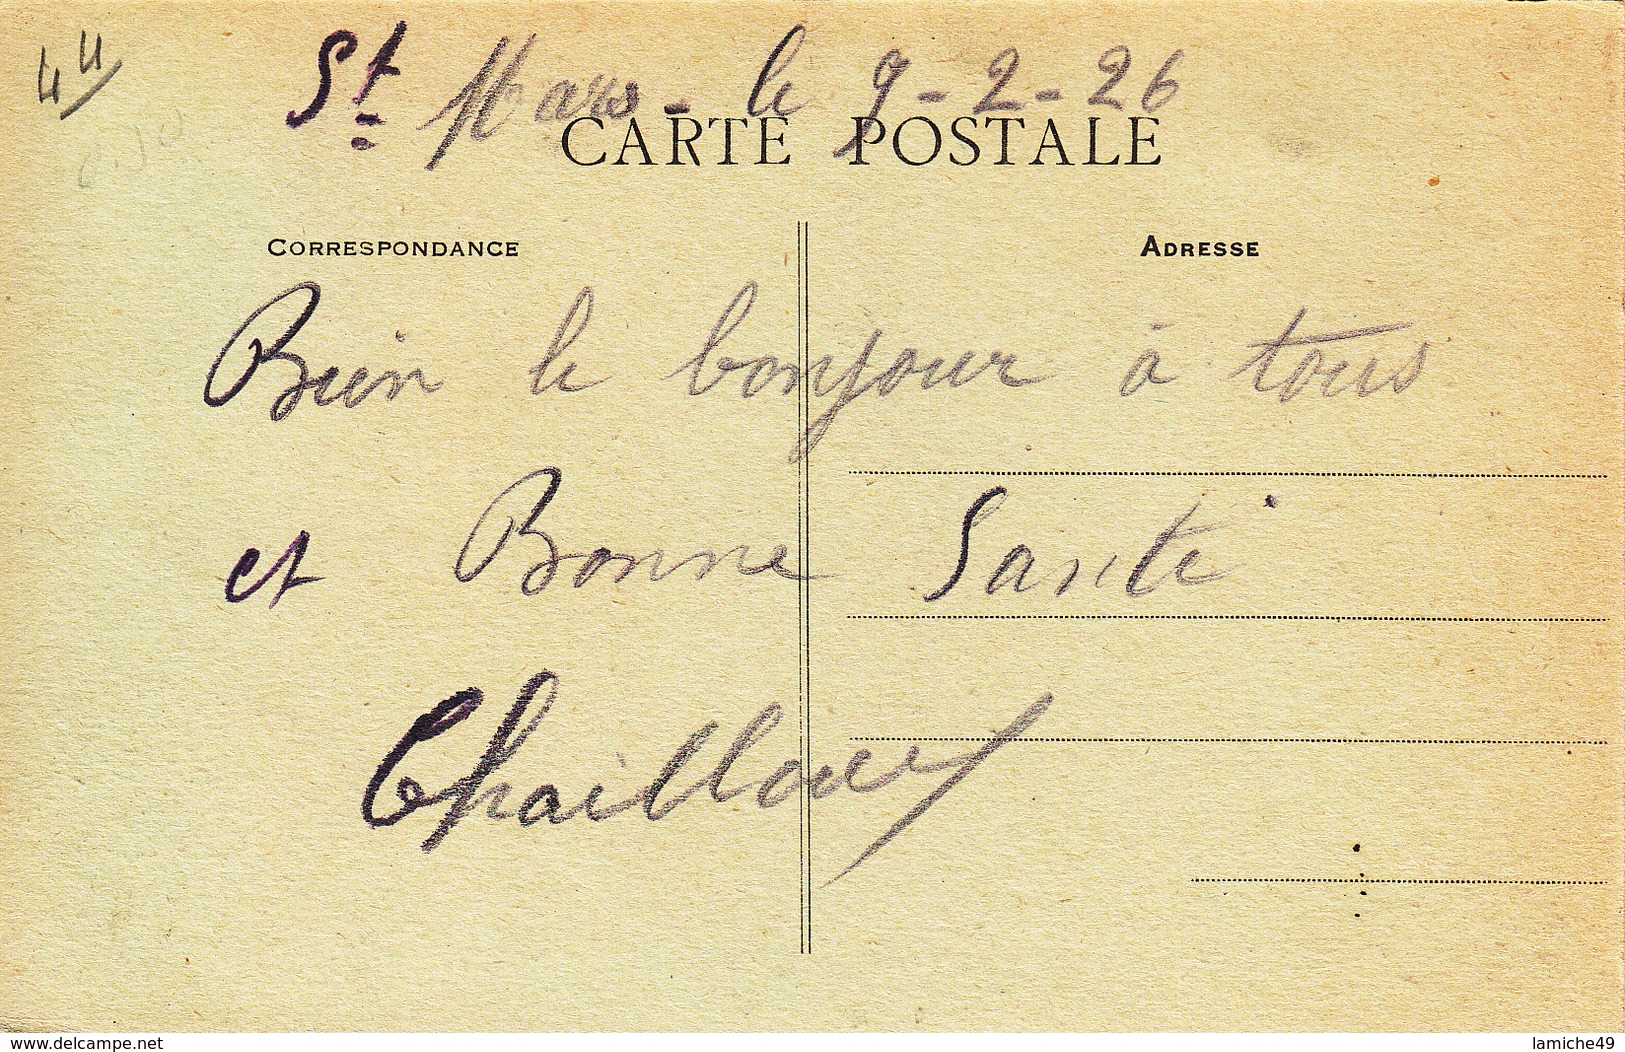 44
St Mars - le 9-2-26
CARTE POSTALE
CORRESPONDANCE
ADRESSE
Bien le bonjour à tous
et Bonne Santé
Chailloux
www.delcampe.net
lamiche49